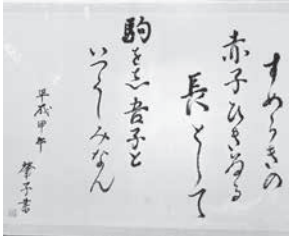 すめらきの
赤子ひきゐる
長として
駒を志吾子と
いつくしみなん
平成甲午
肇子書